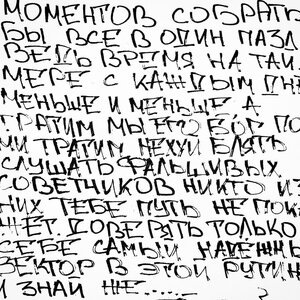 МОМЕНТОВ СОБРАТЬ
БЫ ВСЕ В ОДИН ПАЗЛ
ВЕДЬ ВРЕМЯ НА ТАИ
МЕРЕ С КАЖДЫМ ДН
МЕНЬШЕ И МЕНЬШЕ А
ТРАТИМ МЫ ЕГО БОГ ПО
МИ ТРАТИМ НЕХУИ БЛЯТЬ
СЛУШАТЬ ФАЛЬШИВЫХ
СОВЕТНИКОВ НИКТО ИЗ
НИХ ТЕБЕ ПУТЬ НЕ ПОК
ЖЕТ. ДОВЕРЯТЬ ТОЛЬКО
СЕБЕ САМЫЙ НАДЕЖНЫ
ВЕКТОР В ЭТОЙ РУТИН
И ЗНАЙ ЖЕ.....